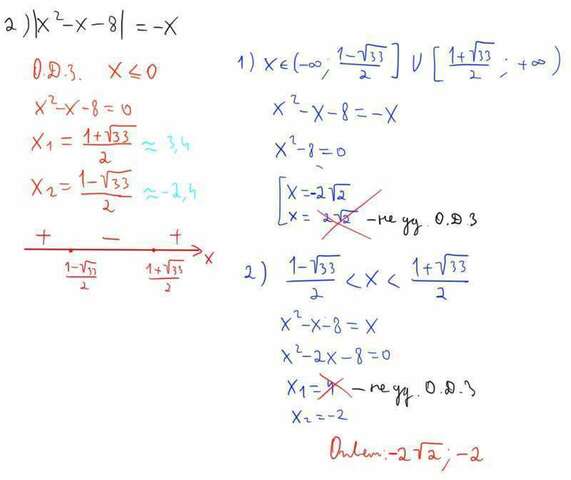 2) |x²-x-8| = -x
О.Д.З. x ≤ 0
x²-x-8=0
x₁ = (1+√33)/2 ≈ 3,4
x₂ = (1-√33)/2 ≈ -2,4
+ - +
(1-√33)/2 (1+√33)/2 x
1) x∈(-∞; (1-√33)/2] ∪ [(1+√33)/2; +∞)
x²-x-8=-x
x²-8=0
[x=-2√2
x= 2√2 – не уд. О.Д.З
2) (1-√33)/2 < x < (1+√33)/2
x²-x-8=x
x²-2x-8=0
x₁=4 – не уд. О.Д.З
x₂=-2
Ответ: -2√2; -2